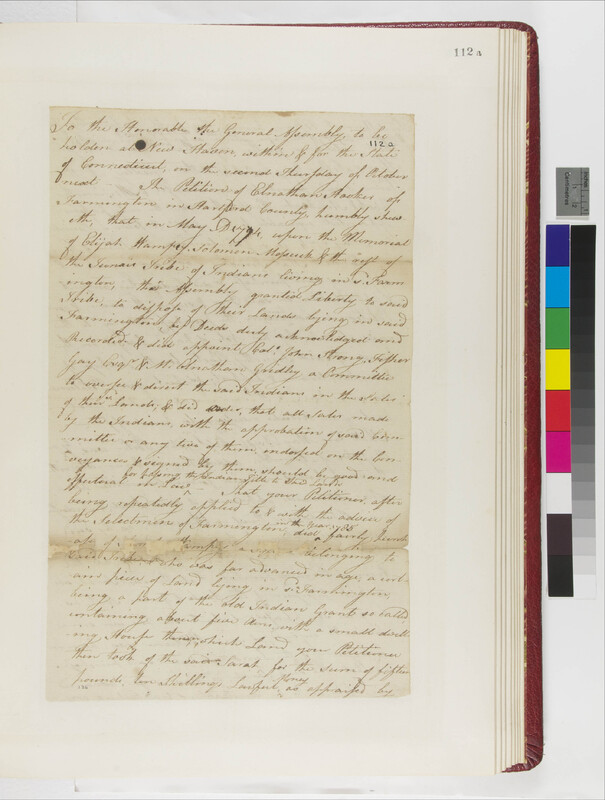 112 A
To the Honorable the General Assembly, to be
112a
holden at New Haven, within & for the State
of Connecticut, on the second Thursday of October
next. The Petition of Elnathan Hooker of
Farmington in Hartford County, humbly shew
eth, that in May upon the Memorial
of Elijah Wampy, Solomon Mossuck & the rest of
the Tunxis Tribe of Indians living in sd. Farm
ington, this Assembly granted Liberty to said
Tribe, to dispose of their Lands lying in said
Farmington, by Deeds duly acknowledged and
Recorded & did appoint Colo. John Strong, Fisher
Gay Esqr. & Mr. Elnathan Gridley a Committee
to oversee & direct the said Indians in the Sales
of their Lands, & did order, that all Sales made
by the Indians, with the approbation of said Com
mittee or any two of them, indorsed on the Con
veyances & signed by them, should be good and
for passing the Indian Title to said Lands
effectual in Law. That your Petitioner, after
being repeatedly applied to & with the advice of
the Selectmen of Farmington, in the year did fairly purch
ase of Belonging to
said Tribe who was far advanced in age, a cert
ain piece of Land lying in sd. Farmington,
being a part of the old Indian Grant so called
containing about five Acres with a small dwell
ing House thereon, which Land your Petitioner
then took of the said Sarah for the sum of fifteen
pounds, ten Shillings Lawful Money as appraised by